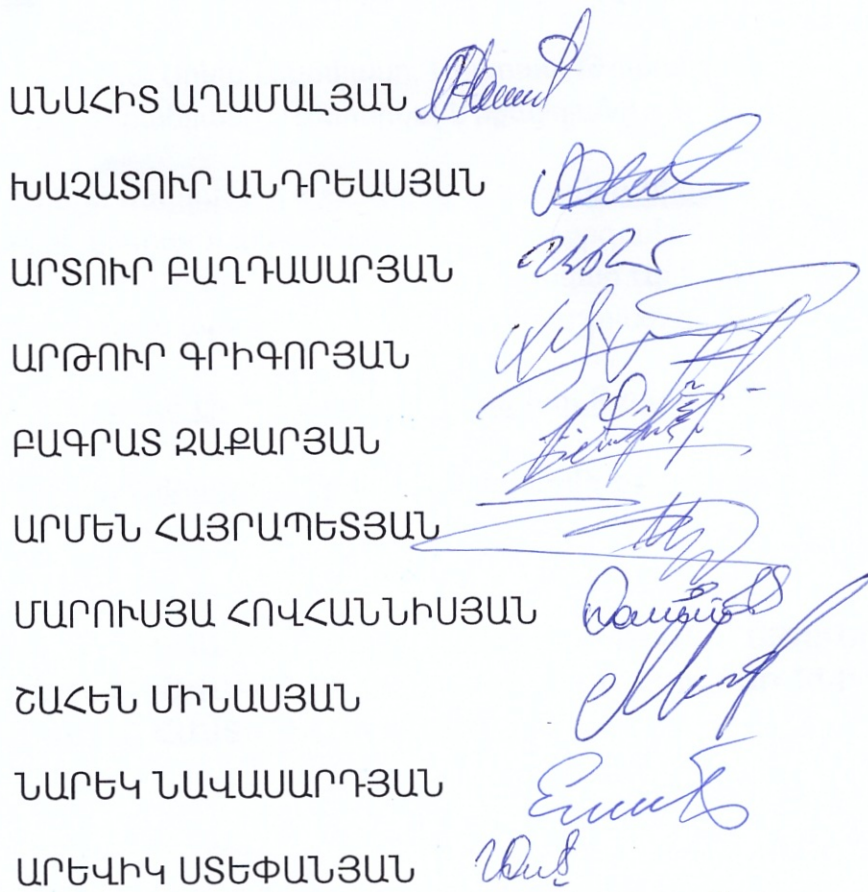 ԱՆԱՀԻՏ ԱՂԱՄԱԼՅԱՆ
ԽԱՉԱՏՈՒՐ ԱՆԴՐԵԱՍՅԱՆ
ԱՐՏՈՒՐ ԲԱՂԴԱՍԱՐՅԱՆ
ԱՐԹՈՒՐ ԳՐԻԳՈՐՅԱՆ
ԲԱԳՐԱՏ ԶԱՔԱՐՅԱՆ
ԱՐՄԵՆ ՀԱՅՐԱՊԵՏՅԱՆ
ՄԱՐՈՒՍՅԱ ՀՈՎՀԱՆՆԻՍՅԱՆ
ՇԱՀԵՆ ՄԻՆԱՍՅԱՆ
ՆԱՐԵԿ ՆԱՎԱՍԱՐԴՅԱՆ
ԱՐԵՎԻԿ ՍՏԵՓԱՆՅԱՆ